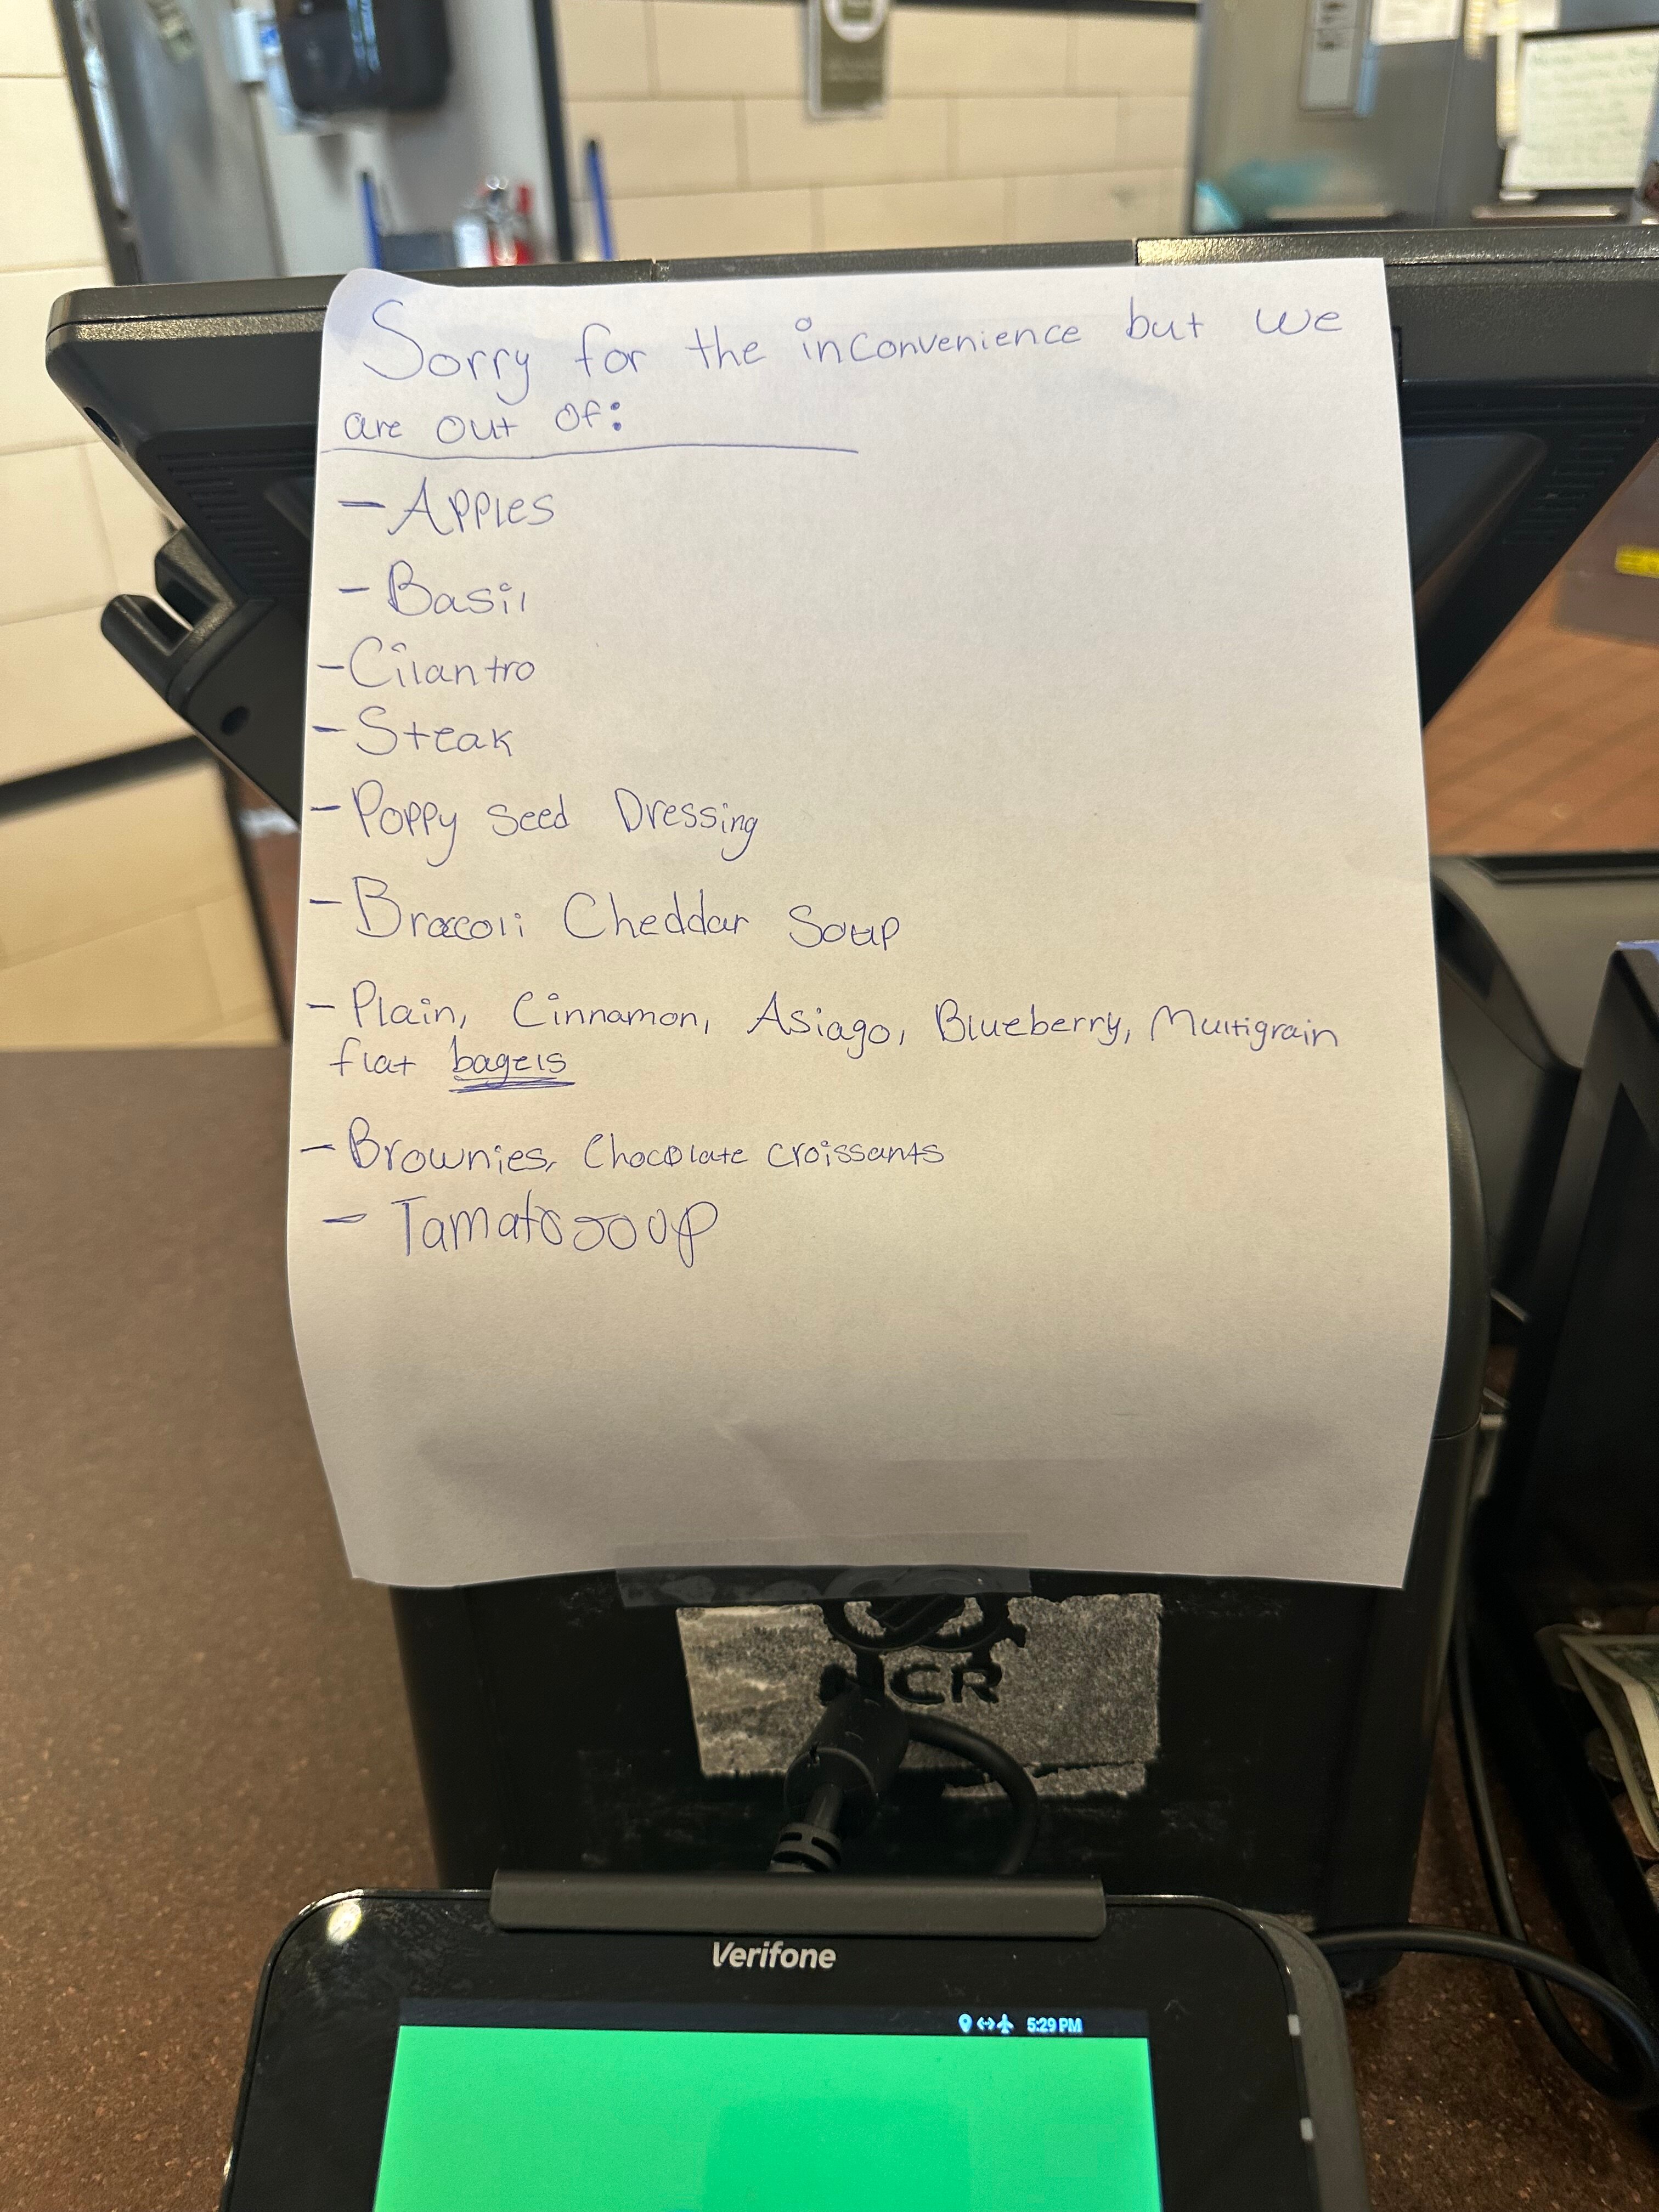 Sorry for the inconvenience but we
are out of:
- Apples
- Basil
- Cilantro
- Steak
- Poppy seed Dressing
- Broccoli Cheddar Soup
- Plain, Cinnamon, Asiago, Blueberry, Multigrain
flat bagels
- Brownies, Chocolate croissants
- Tamato soup
NCR
Verifone
5:29 PM